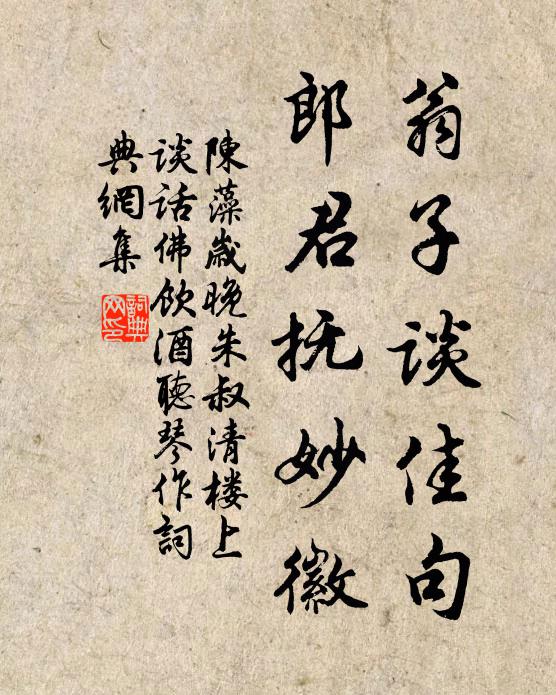 翁子谈佳句
郎君抚妙徽
陳藻歲晚朱叔清楼上
谈话佛飲酒聽琴作詞
典網集
詞典網印